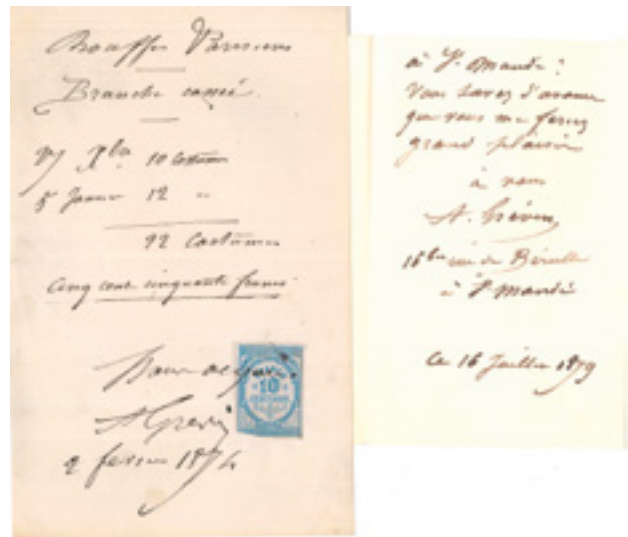 Bouffes Parisiens
Branche cassée.
10 costumes
5 Janvier 12 "
22 Costumes
Cinq cent cinquante francs
10
CENTIMES
A Grévin
2 février 1874
à St Mandé ?
Vous savez d'avance
que vous me ferez
grand plaisir
à vous
A. Grévin
16 bis rue de Bérulle
à St Mandé
Ce 16 Juillet 1879